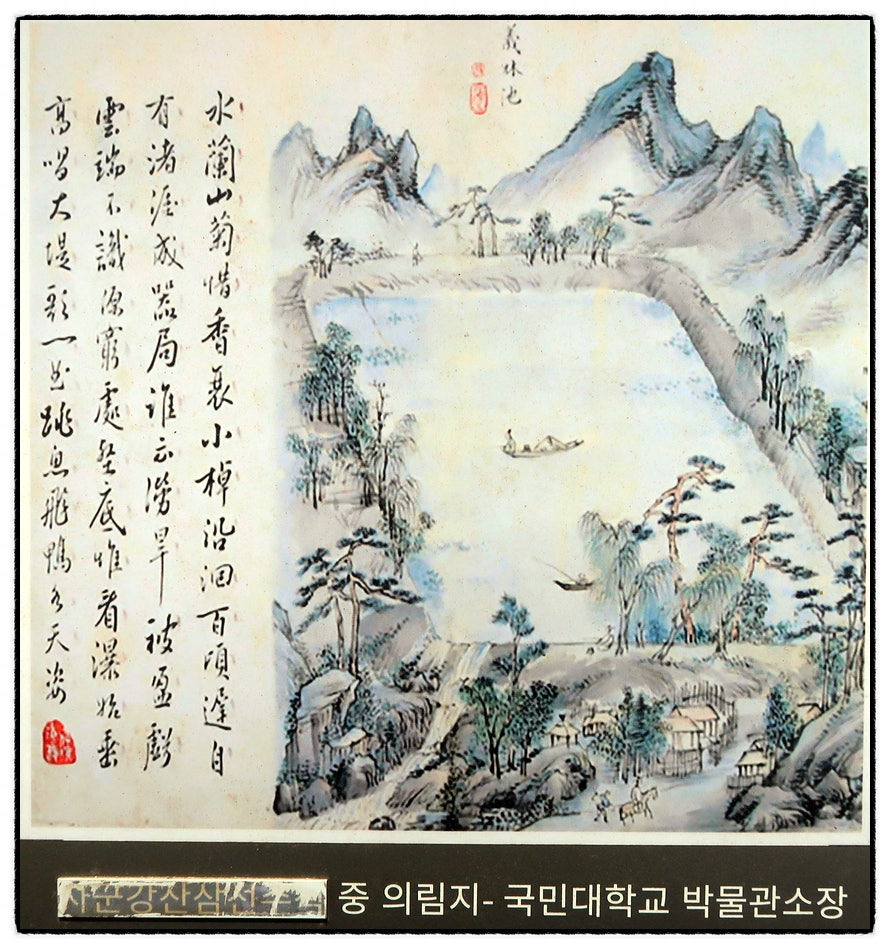 義林池
水蘭山菊惜香衰小棹沿洄百頃遲自
有渚涯成器局誰云澇旱被盈虧
雲端不識源窮處壑底惟看瀑始垂
高唱大堤歌一曲跳魚飛鴨各天姿
중 의림지- 국민대학교 박물관소장